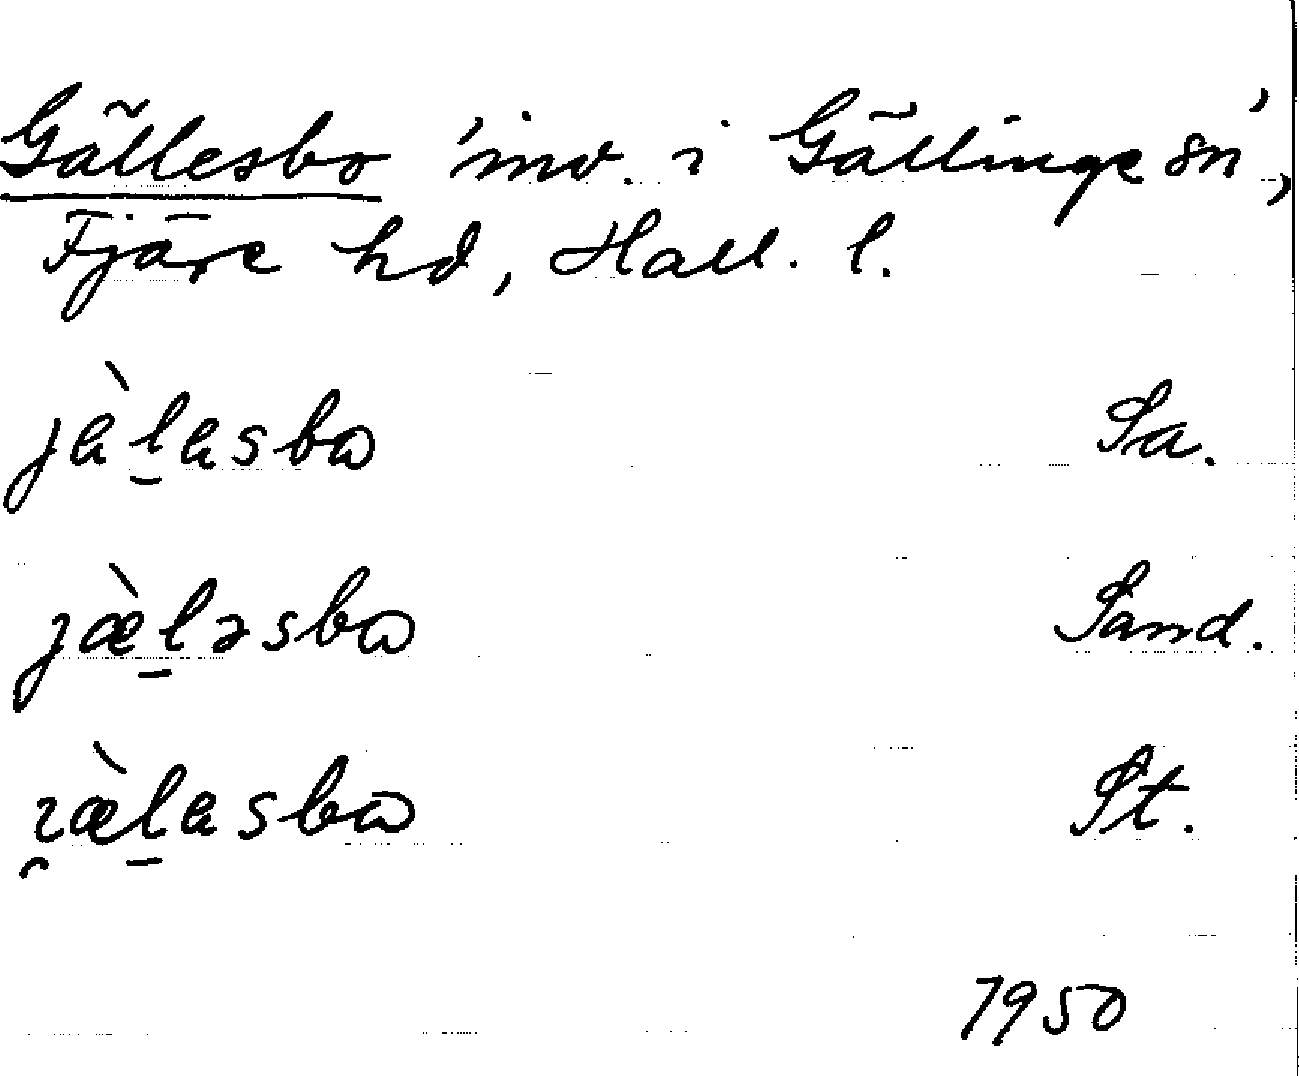 Gällesbo 'inv. i Gällinge sn',
Fjäre hd, Hall. l.
jàl̠asbɷ Sa.
jæ̀l̠əsbɷ Sand.
ı̯æ̀l̠asbɷ St.
1950